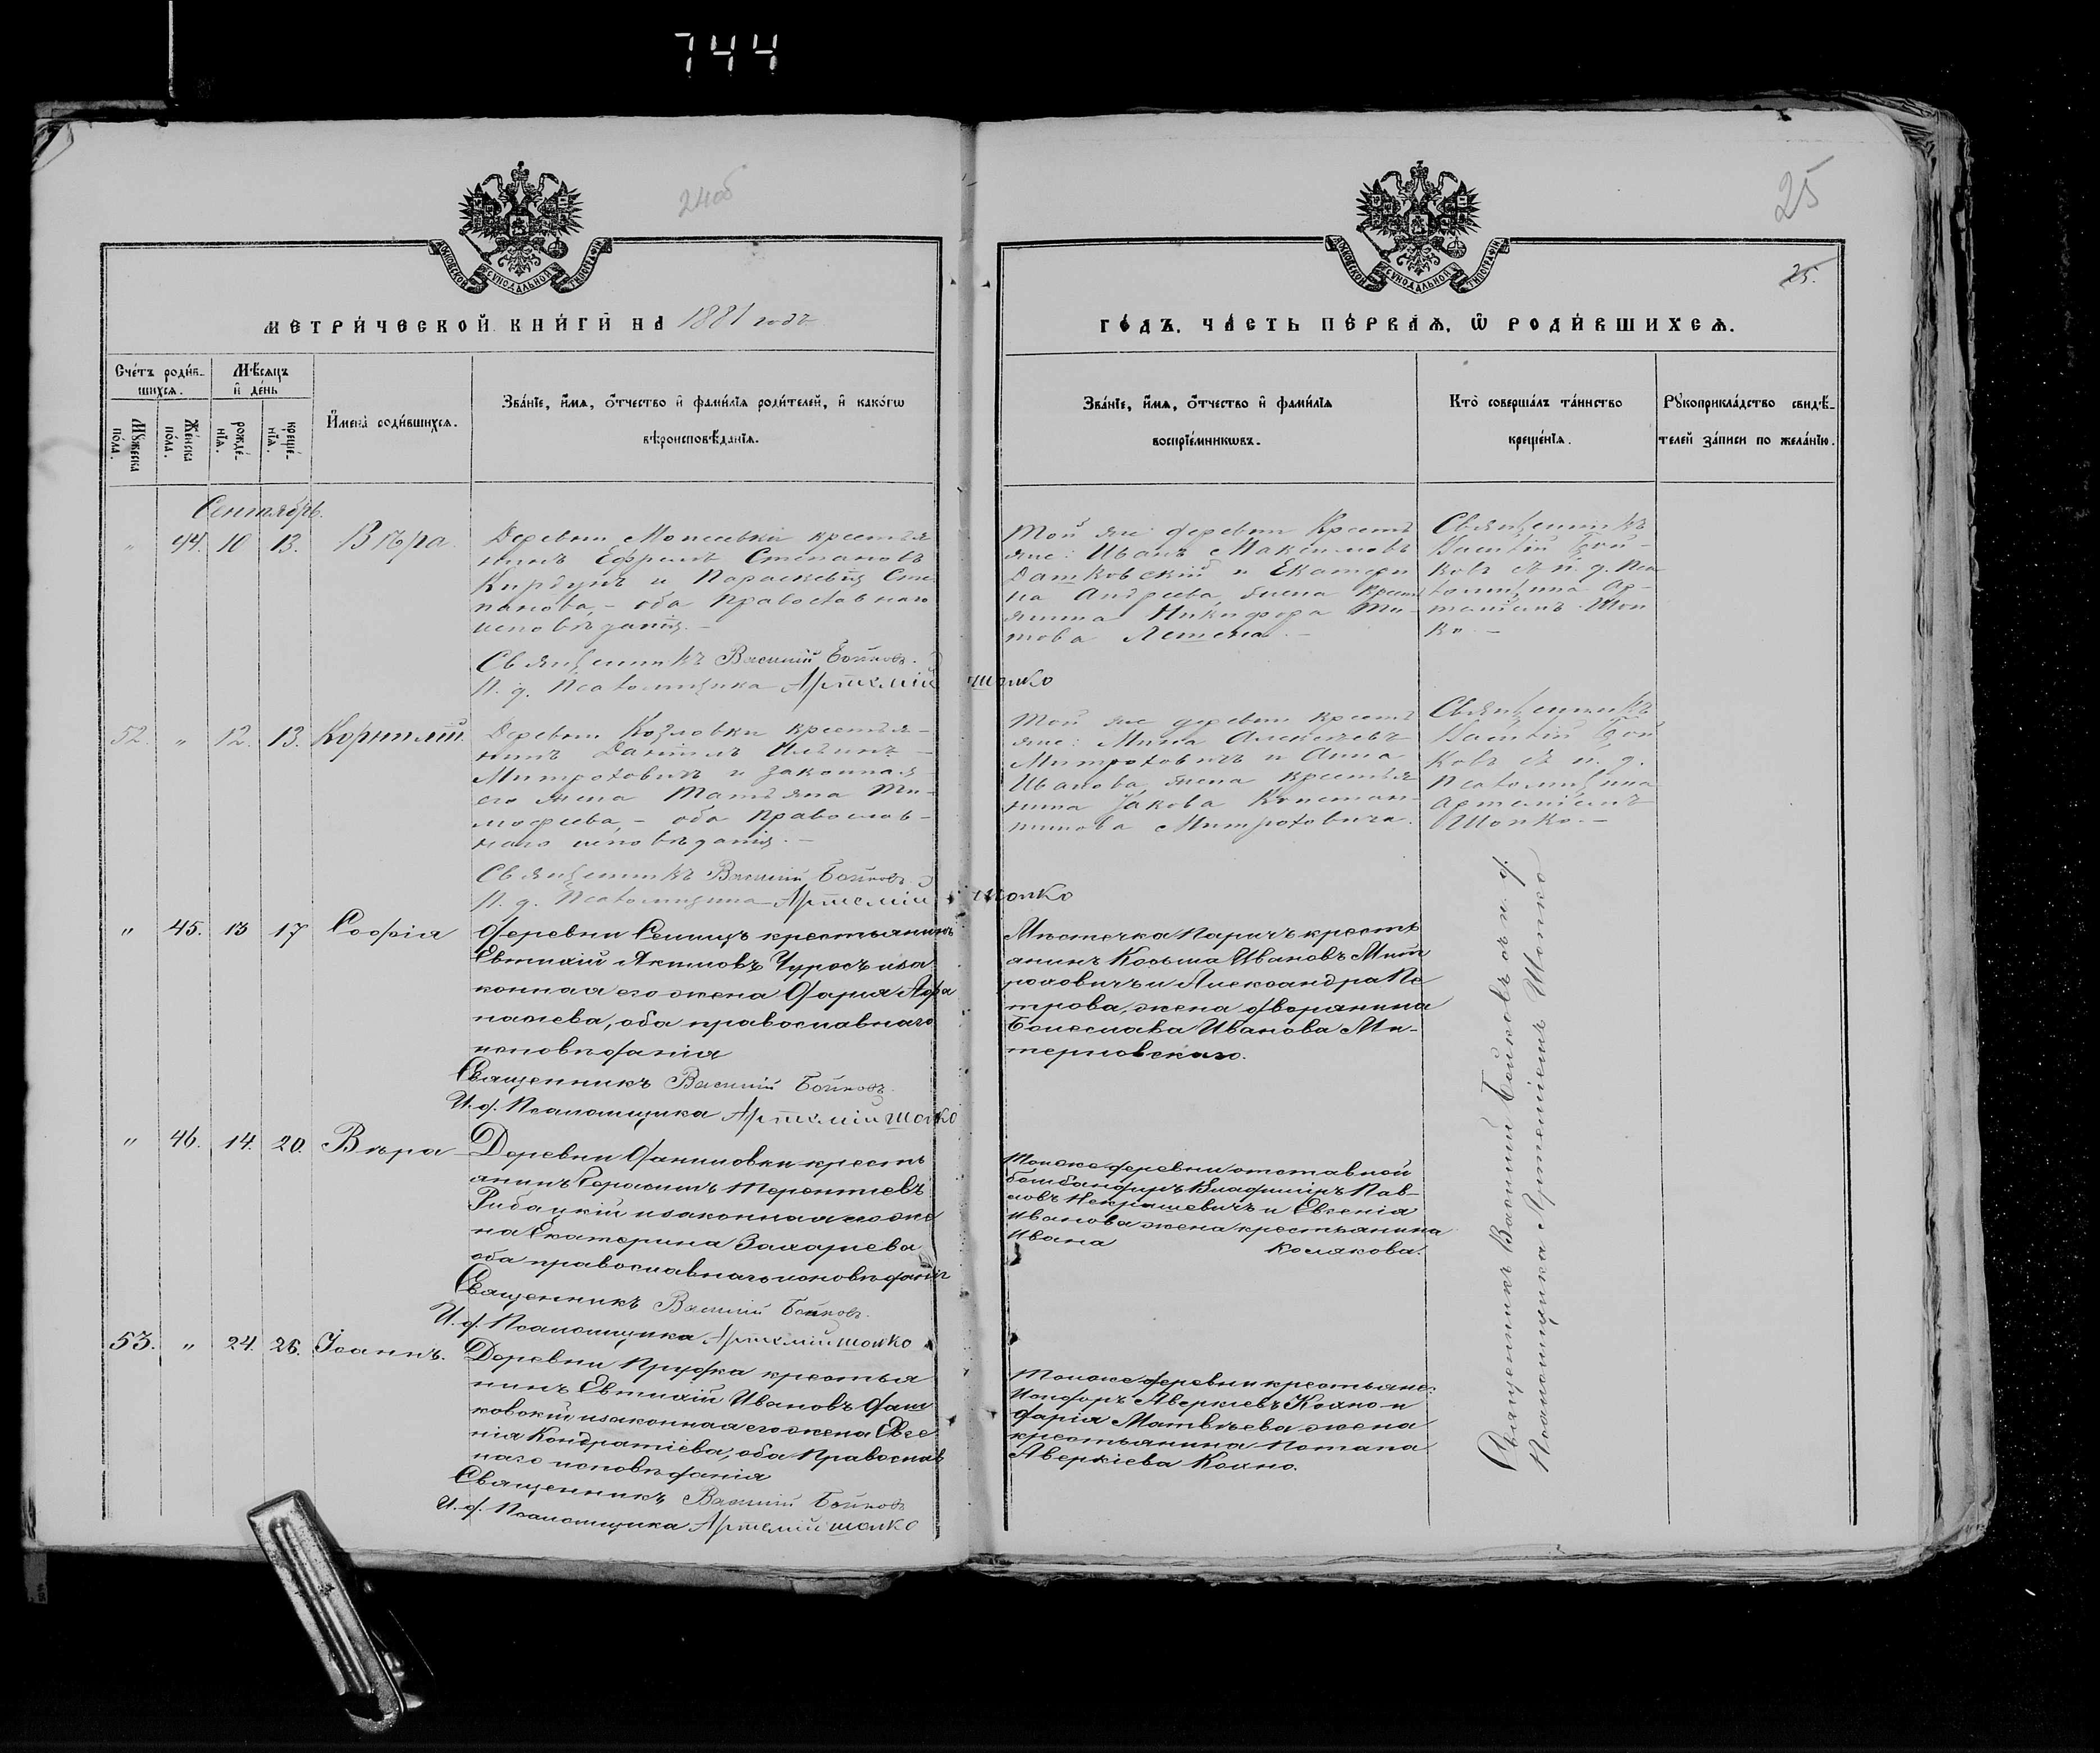 744
24об
25
25.
МОСКОВСКОЙ СѴНОДАЛЬНОЙ ТИПОГРАФІИ
МОСКОВСКОЙ СѴНОДАЛЬНОЙ ТИПОГРАФІИ
МЕТРИ́ЧЕСКОЙ КНИ́ГИ НА 1881 годъ
ГО́ДЪ, ЧА́СТЬ ПЕ́РВАѦ, Ѡ҆ РОДИ́ВШИХСѦ.
Сче́тъ роди́в-
шихсѧ.
Мѣ́сѧцъ
и҆ де́нь
Мꙋ́жеска
по́ла.
Же́нска
по́ла.
рожде́-
нїѧ.
креще́-
нїѧ.
И҆мена̀ роди́вшихсѧ.
Зва́нїе, и҆́мѧ, ѻ҆́тчество и҆ фами́лїѧ роди́телей, и҆ како́гѡ
вѣроисповѣ́данїѧ.
Зва́нїе, и҆́мѧ, ѻ҆́тчество и҆ фами́лїѧ
воспрїе́мникѡвъ.
Кто̀ соверша́лъ та́инство
креще́нїѧ.
Рꙋкоприкла́дство свидѣ́-
телей за́писи по жела́нїю.
Сентябрь.
" 44. 10 13. Вѣра
Деревни Моисеевки крестья
нинъ Ефремъ Степановъ
Кирдунъ и Параскевія Сте
панова, – оба Православнаго
исповѣданія. –
Священникъ Василій Бойковъ.
И. д. Псаломщика Артемій Шолко
Той же деревни Кресть
яне: Иванъ Максимовъ
Дашковскій и Екатери
на Андреева, жена Крест
янина Никифора Ти-
това Летяга. –
Священникъ
Василій Бой-
ковъ съ и. д. Пса
ломщика Ар-
теміемъ Шол
ко. –
52. " 12. 13. Корнилій.
Деревни Козловки крестья-
нинъ Даніилъ Ильинъ –
Митроховичъ и законная
его жена Татьяна Ти-
мофеева, – оба Православ-
наго исповѣданія. –
Священникъ Василій Бойковъ.
И. д. Псаломщика Артемій Шолко
Той же деревни кресть
яне: Мина Алексѣевъ
Митроховичъ и Анна
Иванова, жена крестья
нина Якова Констан-
тинова Митроховича.
Священникъ
Василій Бой
ковъ съ и. д.
Псаломщика
Артеміемъ
Шолко. –
" 45. 13 17 Софія
Деревни Селищъ крестьянинъ
Евтихій Якимовъ Чуросъ и за
конная его жена Дарія Афа
насіева, оба православнаго
исповѣданія
Священникъ Василій Бойковъ.
И. д. Псаломщика Артемій Шолко
Мѣстечка Паричъ кресть
янинъ Косьма Ивановъ Мит
роховичъ и Александра Пе
трова, жена дворянина
Болеслава Иванова Ми-
терновскаго.
Священникъ Василій Бойковъ съ и. д.
Псаломщика Артеміемъ Шолко
" 46. 14. 20. Вѣра
Деревни Даниловки кресть
янинъ Герасимъ Терентіевъ
Рибацкій и законная его же
на Екатерина Захаріева
оба православнаго исповѣданія
Священникъ Василій Бойковъ.
И. д. Псаломщика Артемій Шолко
Тойже деревни отставной
бомбандиръ Владимиръ Пав-
ловъ Некрашевичъ и Евгенія
Иванова жена крестьянина
Ивана Колякова.
53. " 24. 26. Іоаннъ.
Деревни Прудка крестья
нинъ Евтихій Ивановъ Даш
ковскій и законная его жена Евге
нія Кондратіева, оба Православ
наго исповѣданія
Священникъ Василій Бойковъ
И. д. Псаломщика Артемій Шолко
Тойже деревни крестьяне:
Аверкіевъ Кохно и
Дарія Матвѣева жена
крестьянина Потапа
Аверкіева Кохно.